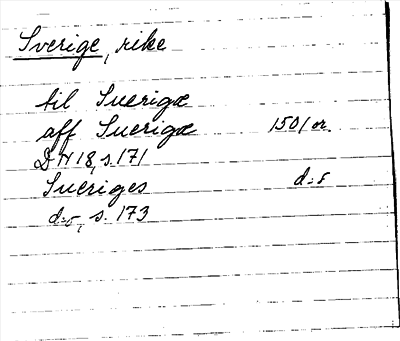 Sverige, rike
til Suerigæ
aff Suerigæ 1501 or.
DN 18, s. 171
Sueriges d:o
d:o, s. 173